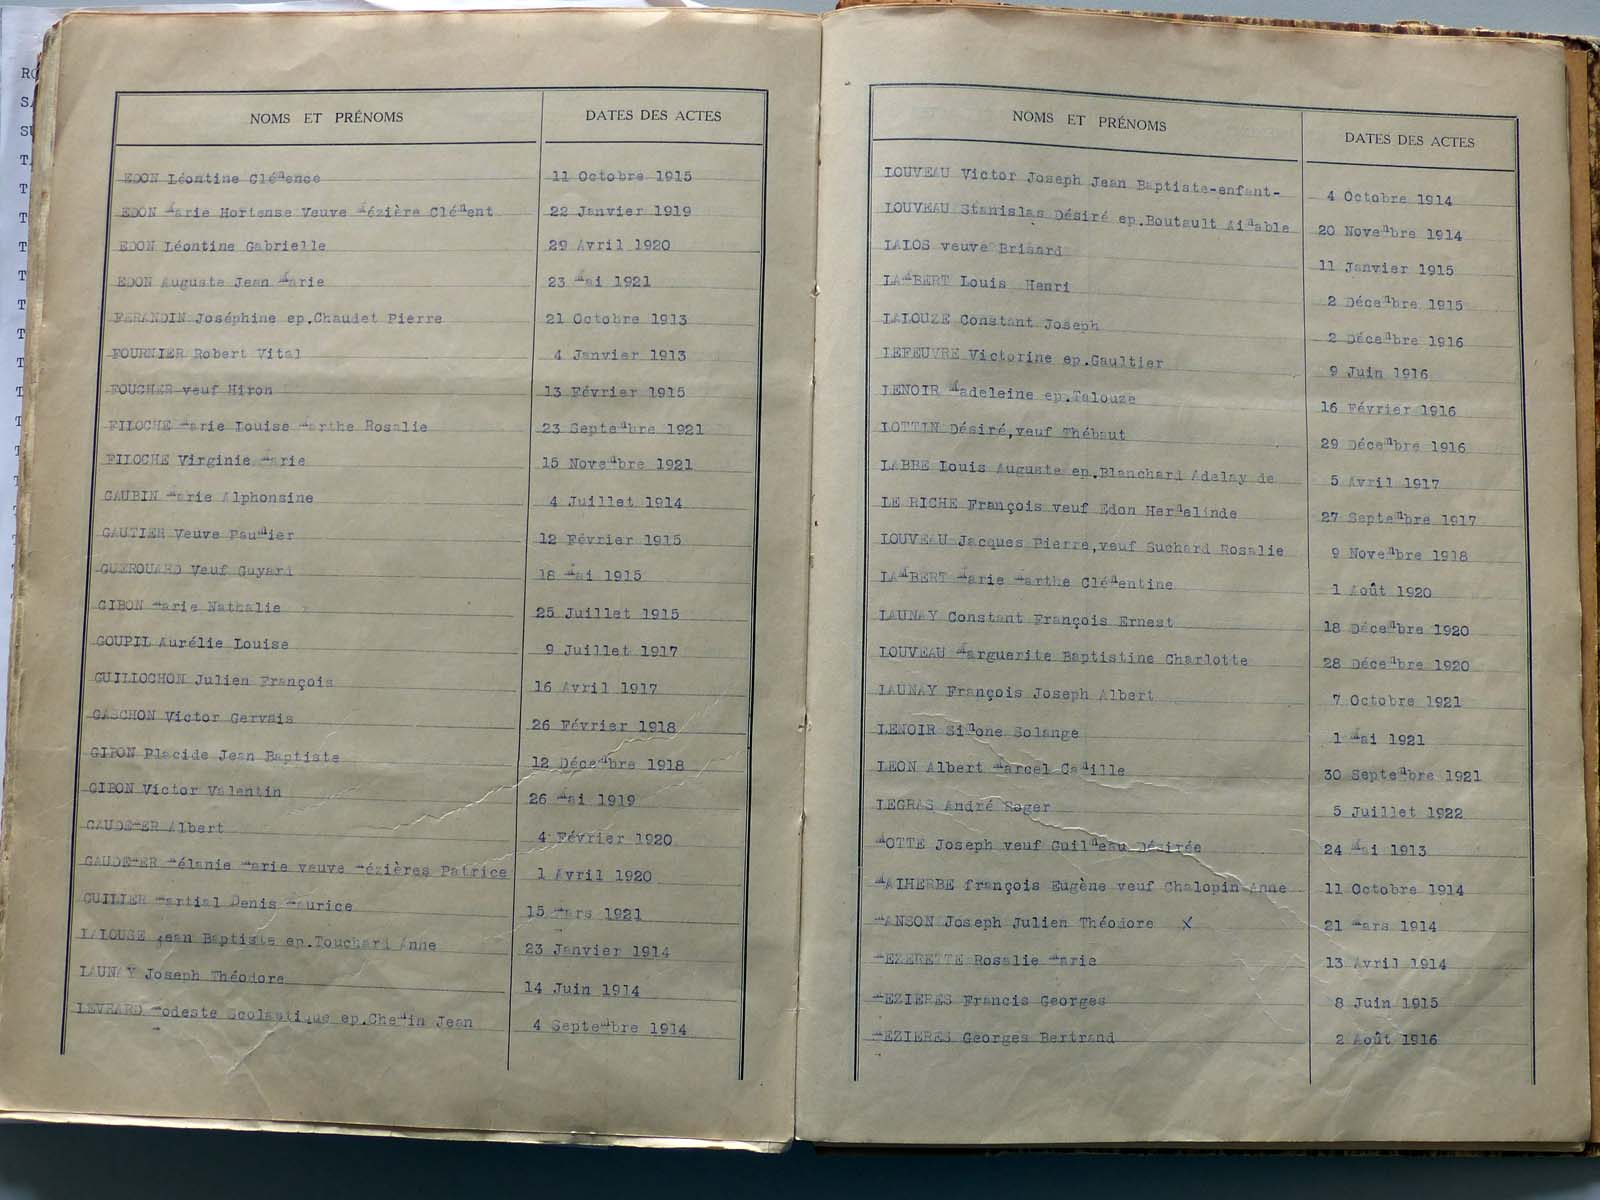 NOMS ET PRÉNOMS DATES DES ACTES
EDON Léontine Clémence 11 Octobre 1915
EDON Marie Hortense Veuve Mézière Clément 22 Janvier 1919
EDON Léontine Gabrielle 29 Avril 1920
EDON Auguste Jean Marie 23 Mai 1921
FERANDIN Joséphine ep.Chaudet Pierre 21 Octobre 1913
FOURNIER Robert Vital 4 Janvier 1913
FOUCHER veuf Hiron 13 Février 1915
FILOCHE Marie Louise Marthe Rosalie 23 Septembre 1921
FILOCHE Virginie Marie 15 Novembre 1921
GAUBIN Marie Alphonsine 4 Juillet 1914
GAUTIER Veuve Paumier 12 Février 1915
GUEROUARD Veuf Guyard 18 Mai 1915
GIBON Marie Nathalie 25 Juillet 1915
GOUPIL Aurélie Louise 9 Juillet 1917
GUILLOCHON Julien François 16 Avril 1917
GASCHON Victor Gervais 26 Février 1918
GIBON Placide Jean Baptiste 12 Décembre 1918
GIBON Victor Valentin 26 Mai 1919
GAUDEMER Albert 4 Février 1920
GAUDEMER Mélanie Marie veuve Mézières Patrice 1 Avril 1920
GUILIER Martial Denis Maurice 15 Mars 1921
LALOUSE Jean Baptiste ep.Touchard Anne 23 Janvier 1914
LAUNAY Joseph Théodore 14 Juin 1914
LEVRARD Modeste Scolastique ep.Chemin Jean 4 Septembre 1914
NOMS ET PRÉNOMS DATES DES ACTES
LOUVEAU Victor Joseph Jean Baptiste-enfant- 4 Octobre 1914
LOUVEAU Stanislas Désiré ep.Boutault Aimable 20 Novembre 1914
LALOS veuve Brisard 11 Janvier 1915
LAMBERT Louis Henri 2 Décembre 1915
LALOUZE Constant Joseph 2 Décembre 1916
LEFEUVRE Victorine ep.Gaultier 9 Juin 1916
LENOIR Madeleine ep.Talouze 16 Février 1916
LOTTIN Désiré,veuf Thébaut 29 Décembre 1916
LABBE Louis Auguste ep.Blanchard Adelay de 5 Avril 1917
LE RICHE François veuf Edon Hermelinde 27 Septembre 1917
LOUVEAU Jacques Pierre,veuf Suchard Rosalie 9 Novembre 1918
LAMBERT Marie Marthe Clémentine 1 Août 1920
LAUNAY Constant François Ernest 18 Décembre 1920
LOUVEAU Marguerite Baptistine Charlotte 28 Décembre 1920
LAUNAY François Joseph Albert 7 Octobre 1921
LENOIR Simone Solange 1 Mai 1921
LEON Albert Marcel Camille 30 Septembre 1921
LEGRAS André Roger 5 Juillet 1922
MOTTE Joseph veuf Guilmeau Désirée 24 Mai 1913
MALHERBE françois Eugène veuf Chalopin Anne 11 Octobre 1914
MANSON Joseph Julien Théodore X 21 Mars 1914
MEZERETTE Rosalie Marie 13 Avril 1914
MEZIERES Francis Georges 8 Juin 1915
MEZIERES Georges Bertrand 2 Août 1916